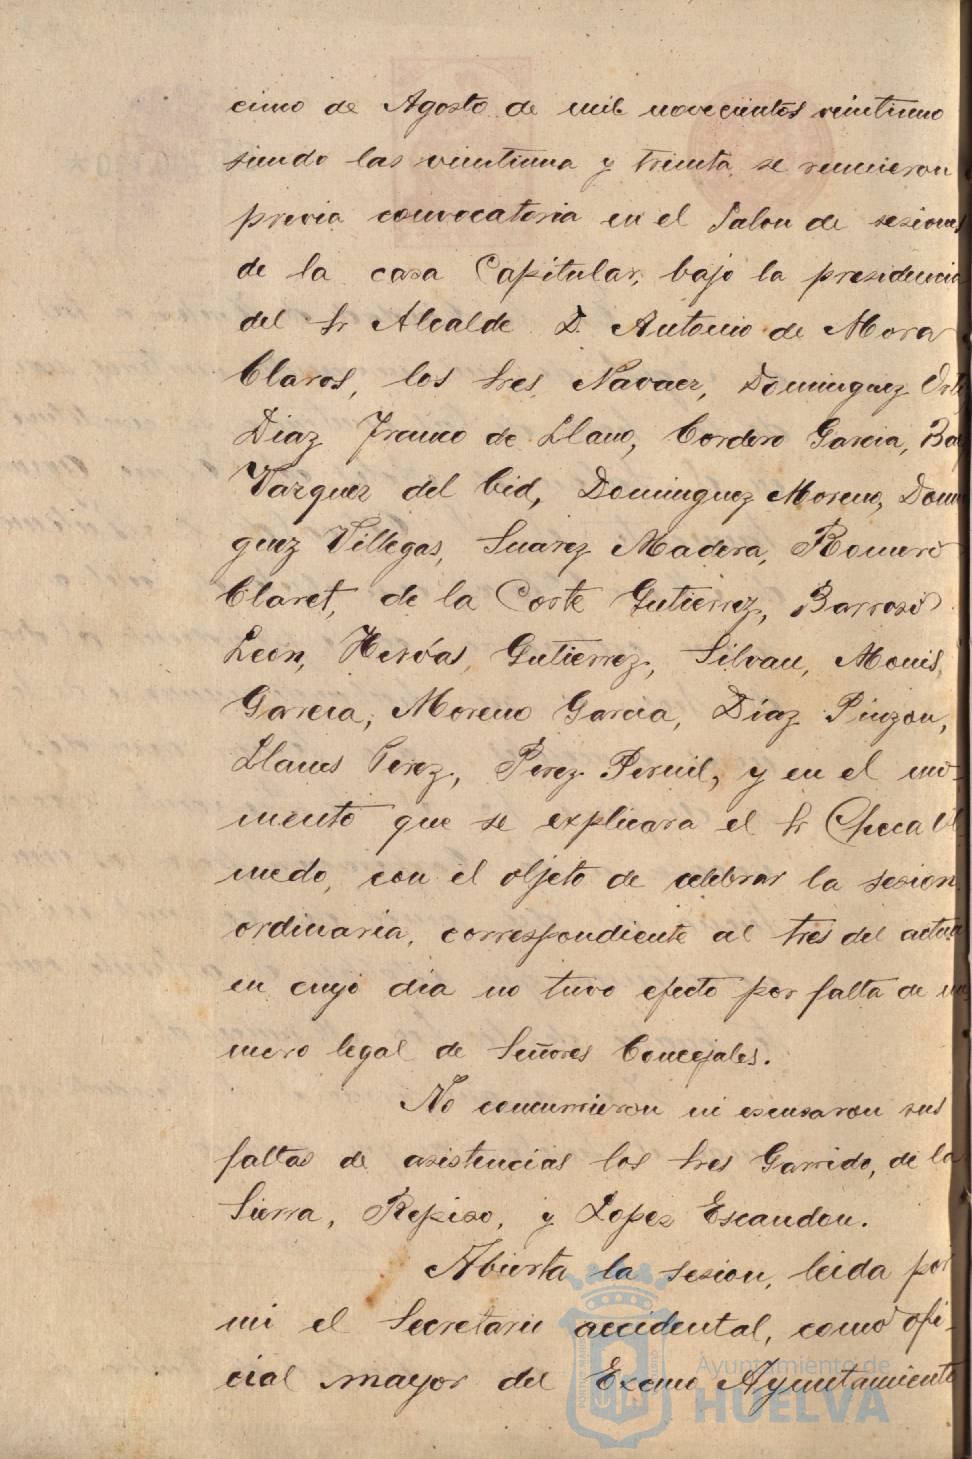 cimo de Agosto de mil novecientos veintiuno
siendo las veintiuna y treinta se reunieron
previa convocatoria en el Salon de sesiones
de la casa Capitular, bajo la presidencia
del Sr Alcalde D. Antonio de Mora
Claros, los Sres. Navaez, Dominguez Ort
Diaz Franco de Llano, Cordero Garcia, Ba
Vazquez del Cid, Dominguez Moreno, Domin
guez Villegas, Suarez Madera, Romero
Claret, de la Corte Gutierrez, Barroso
León, Hervás Gutierrez, Silvan, Monis,
Garcia, Moreno Garcia, Díaz Pinzon,
Llanes Perez, Perez Pernil, y en el mo-
mento que se explicara el Sr Checa Ol
medo, con el objeto de celebrar la sesion
ordinaria, correspondiente al tres del actual
en cuyo dia no tuvo efecto por falta de nu
mero legal de Señores Concejales.
No concurrieron ni escusaron sus
faltas de asistencias los Sres Garrido, de la
Sierra, Repiso, y Lopez Escandon.
Abierta la sesion, leida por
mi el Secretario accidental, como ofi-
cial mayor del Excmo Ayuntamiento
Ayuntamiento de
HUELVA